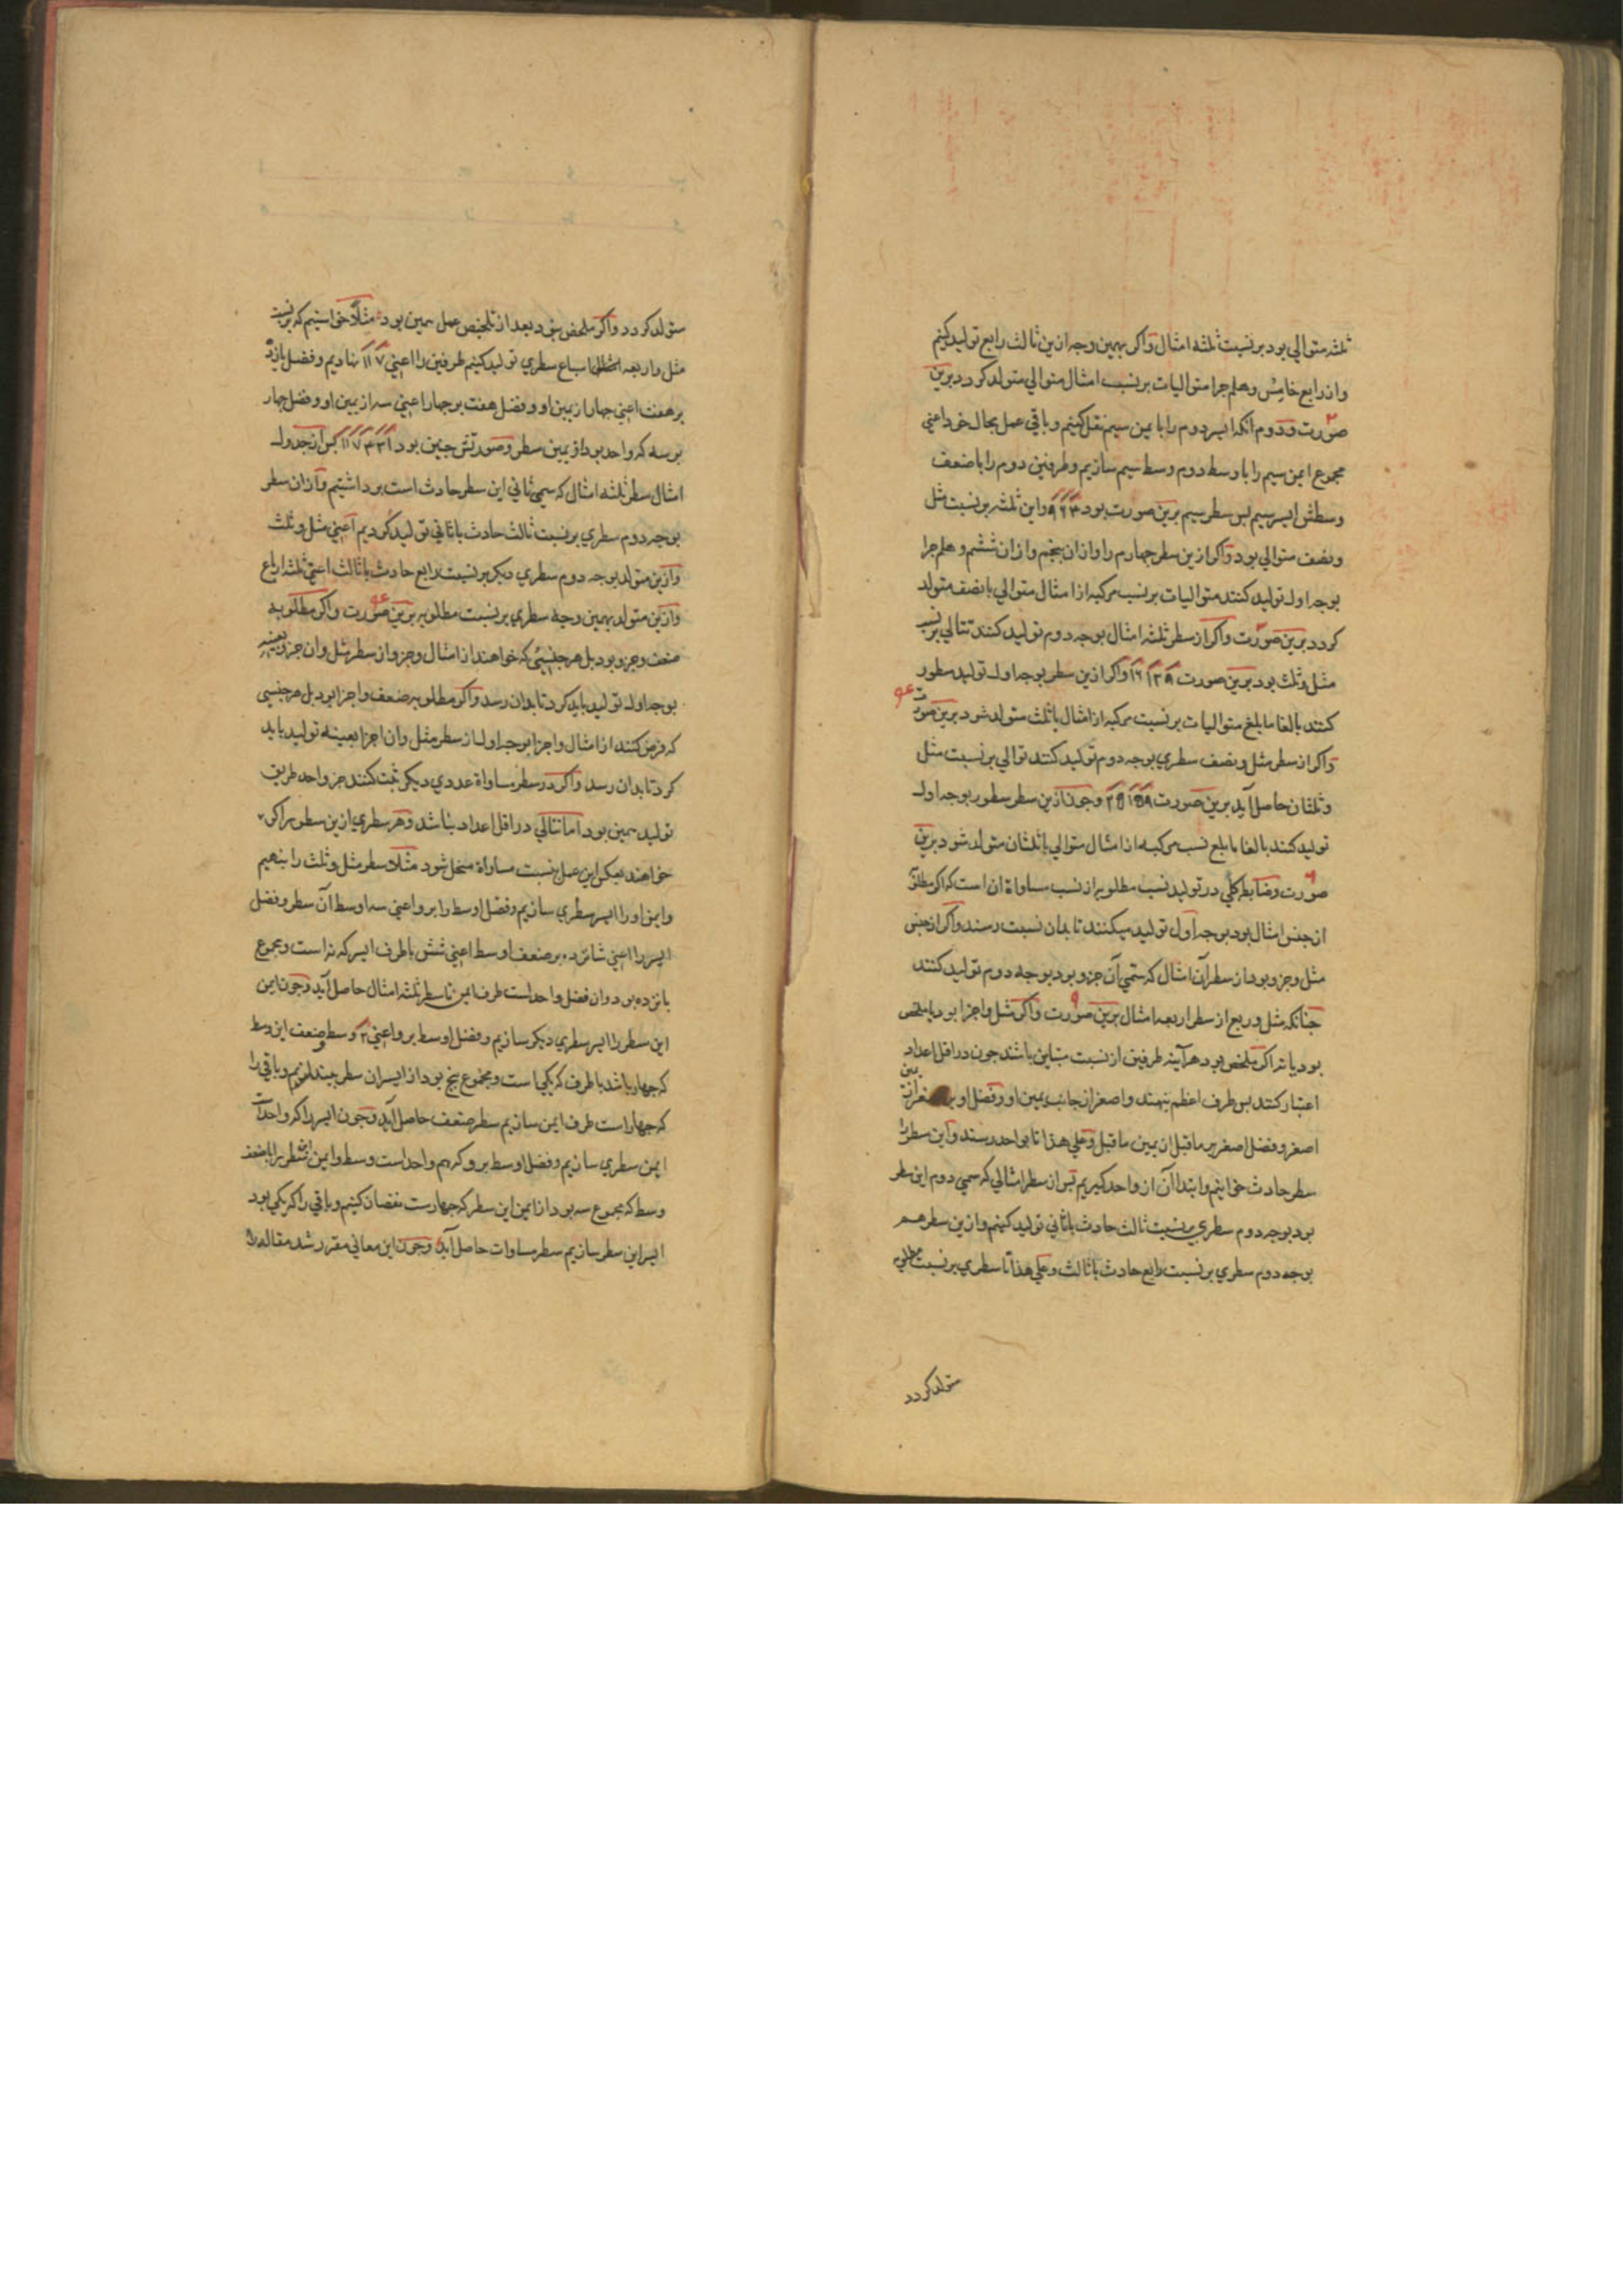 ثلثه متوالي بود بر نسبت ثلثه امثال واكر بهمين وجه ازين ثالث رابع توليد كنيم
واز رابع خامس وهلم جرا متواليات بر نسب امثال متوالي متولد كردد برين
صورت ودوم آنكه ايسر دوم را با يمن سيم نقل كنيم وباقي عمل بحال خود اعني
مجموع ايمن سيم را با وسط دوم وسط سيم سازيم وطرفين دوم را با ضعف
وسطش ايسر سيم پس سطر سيم برين صورت بود ٤ ٦ ٩ واين ثلثه بر نسبت مثل
ونصف متوالي بود واكر ازين سطر چهارم را واز ان پنجم واز ان ششم وهلم جرا
بوجه اول توليد كنند متواليات بر نسب مركبه از امثال متوالي با نصف متولد
كردد برين صورت واكر از سطر ثلثه امثال بوجه دوم توليد كنند تتالي بر نسب
مثل وثلث بود برين صورت ٩ ١٢ ١٦ واكر ازين سطر بوجه اول توليد سطور
كنند بالغا ما بلغ متواليات بر نسبت مركبه از امثال با ثلث متولد شود برين صورت
واكر از سطر مثل ونصف سطري بوجه دوم توليد كنند توالي بر نسبت مثل
وثلثان حاصل آيد برين صورت ٩ ١٥ ٢٥ وچون ازين سطر سطور بوجه اول
توليد كنند بالغا ما بلغ نسب مركبه از امثال متوالي با ثلثان متولد شود برين
صورت وضابط كلي در توليد نسب مطلوبه از نسب مساواة ان است كه اكر مطلوب
از جنس امثال بود بوجه اول توليد ميكنند تا بدان نسبت رسند واكر از جنس
مثل وجزو بود از سطر آن امثال كه سمي آن جزو بود بوجه دوم توليد كنند
چنانكه مثل وربع از سطر اربعه امثال برين صورت واكر مثل واجزا بود يا ملخص
بود يا نه اكر ملخص بود هرآينه طرفين از نسبت متباين باشد چون در اقل اعداد
اعتبار كنند پس طرف اعظم بنهند واصغر از جانب يمين او وفضل او بر اصغر از يمين
اصغر وفضل اصغر بر ما قبل از يمين ما قبل وعلي هذا تا بواحد رسند واين سطر را
سطر حادث خوانيم وابتدا آن از واحد كيريم پس از سطر امثالي كه سمي دوم اين سطر
بود بوجه دوم سطري بر نسبت ثالث حادث با ثاني توليد كنيم وازين سطر هم
بوجه دوم سطري بر نسبت رابع حادث با ثالث وعلي هذا تا سطري بر نسبت مطلوب
متولد كردد
متولد كردد واكر ملخص نبود بعد از تلخيص عمل همين بود مثلا خواستيم كه بر نسبت
مثل واربعه اسباع سطري توليد كنيم طرفين را اعني ٧ ١١ بنهاديم وفضل يازده
بر هفت اعني چهار از يمين او وفضل هفت بر چهار اعني سه از يمين او وفضل چهار
بر سه كه واحد بود از يمين سطر وصورتش چنين بود ١ ٣ ٤ ٧ ١١ پس از جدول
امثال سطر ثلثه امثال كه سمي ثاني اين سطر حادث است برداشتيم واز ان سطر
بوجه دوم سطري بر نسبت ثالث حادث با ثاني توليد كرديم اعني مثل وثلث
وازين متولد بوجه دوم سطري ديكر بر نسبت رابع حادث با ثالث اعني ثلثه ارباع
وازين متولد بهمين وجه سطري بر نسبت مطلوبه برين صورت واكر مطلوب
ضعف وجزو بود بل هر جنسي كه خواهند از امثال وجزو از سطر مثل وان جزو بعينه
بوجه اول توليد بايد كرد تا بدان رسد واكر مطلوب ضعف واجزا بود بل هر جنسي
كه فرض كنند از امثال واجزا بوجه اول از سطر مثل وان اجزا بعينه توليد بايد
كرد تا بدان رسد واكر در سطر مساواة عددي ديكر ثبت كنند جز واحد طريق
توليد همين بود اما تتالي در اقل اعداد نباشد وهر سطري ازين سطور را كه
خواهند بعكس اين عمل بنسبت مساواة منحل شود مثلا سطر مثل وثلث را بنهيم
وايمن او را ايسر سطري سازيم وفضل اوسط را برو اعني سه اوسط آن سطر وفضل
ايسر را اعني شانزده بر ضعف اوسط اعني شش با طرف ايسر كه نه است ومجموع
پانزده بود وان فضل واحد است طرف ايمن تا سطر ثلثه امثال حاصل آيد وچون ايمن
اين سطر را ايسر سطري ديكر سازيم وفضل اوسط برو اعني ٢ وسط وضعف اين وسط
كه چهار باشد با طرف كه يكي است ومجموع پنج بود از ايسر ان سطر بيندازيم وباقي را
كه چهار است طرف ايمن سازيم سطر ضعف حاصل آيد وچون ايسر را كه واحد است
ايمن سطري سازيم وفضل اوسط برو كه هم واحد است وسط وايمن اين سطر را با ضعف
وسط كه مجموع سه بود از ايمن اين سطر كه چهار است نقصان كنيم وباقي را كه يكي بود
ايسر اين سطر سازيم سطر مساوات حاصل آيد وچون اين معاني مقرر شد مقاله را